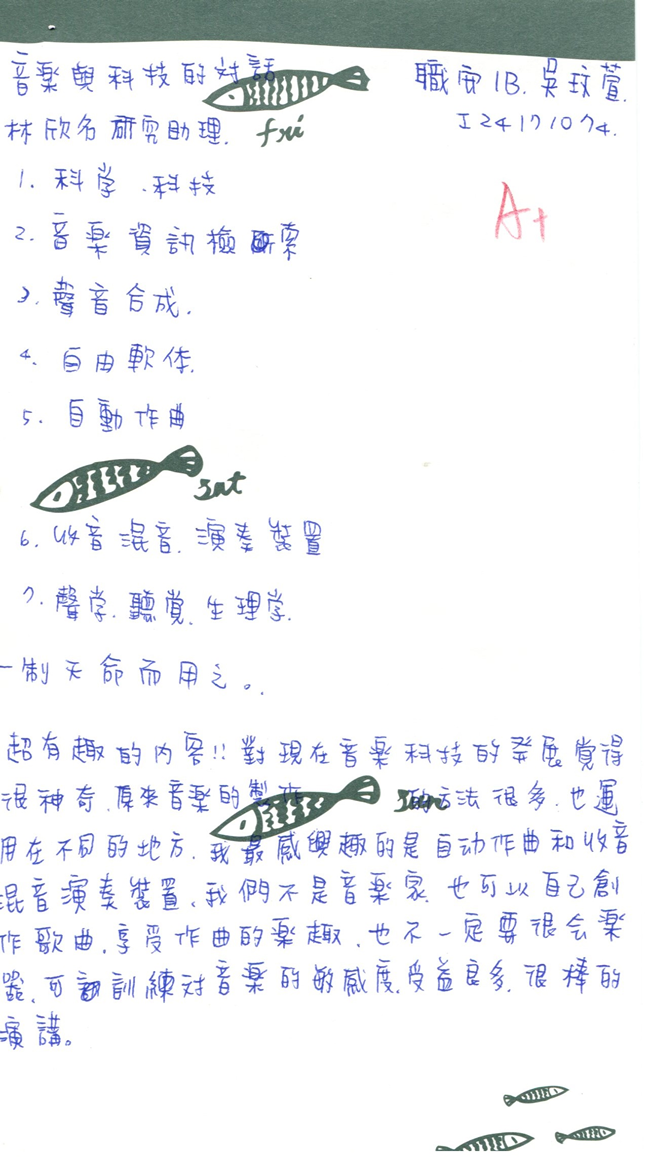 音楽與科技的対話
職安1B. 吳玟萱.
林欣名 研究助理.
I24171074.
fri
1. 科学、科技
A+
2. 音楽資訊檢索
3. 聲音合成.
4. 自由軟体.
5. 自動作曲
sat
6. 收音混音.演奏裝置
7. 聲学.聽覚.生理学.
一制天命而用之。
超有趣的內容!!對現在音楽科技的発展覺得
很神奇.原來音楽的製作 的方法很多.也運
sun
用在不同的地方.我最感興趣的是自动作曲和收音
混音演奏裝置、我們不是音楽家.也可以自己創
作歌曲.享受作曲的楽趣、也不一定要很会楽
器、可訓練対音楽的敏感度.受益良多.很棒的
演講。